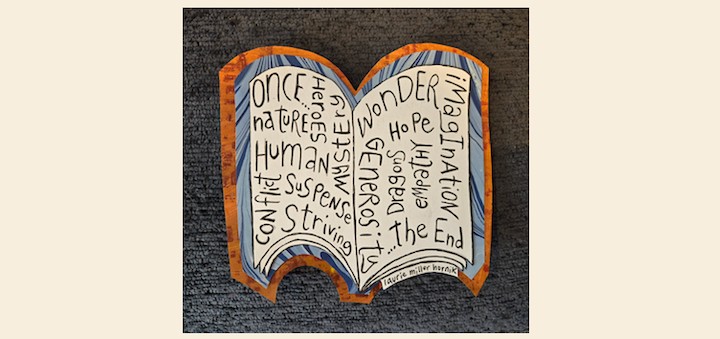 ONCE...
HeROES
MYSTERY
natURE
Human
SUSPENSE
CONFlict
Striving
WONDER
iMagINATION
HoPe
GENEROSITY
DRagons
empatHY
...the End
laurie miller hornik